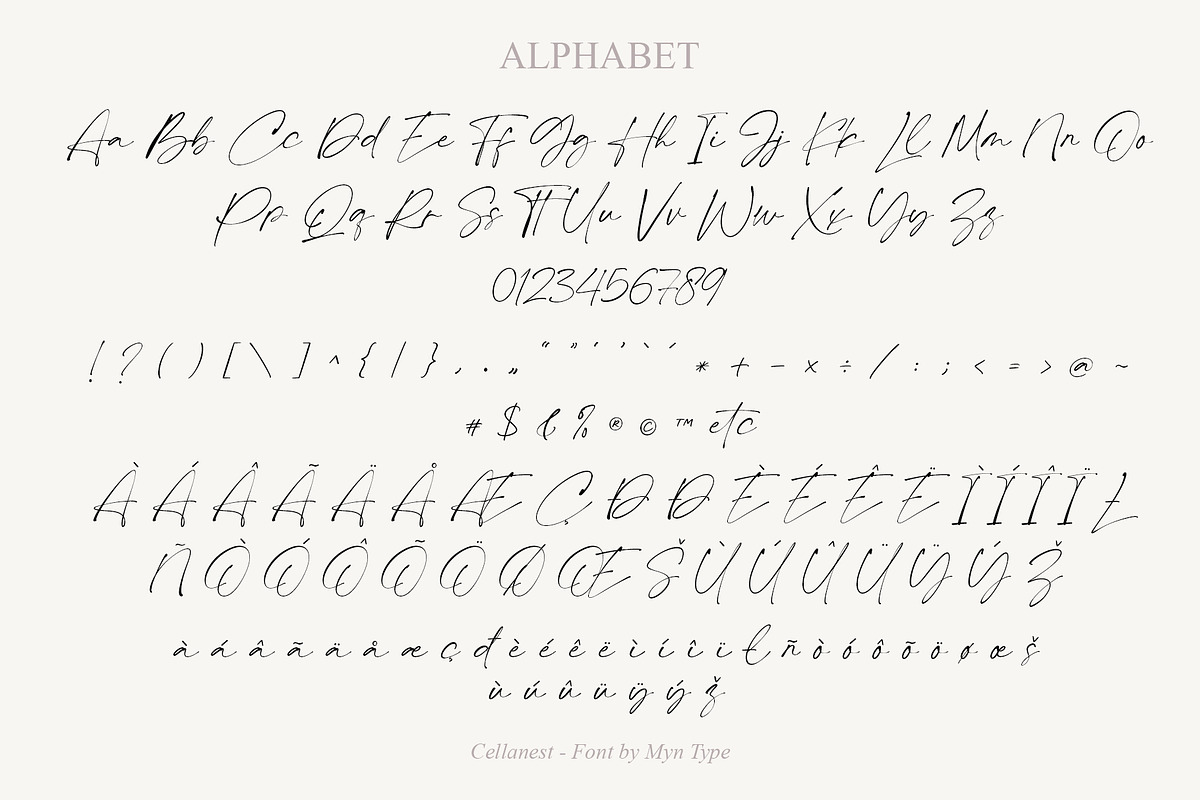 ALPHABET
Aa Bb Cc Dd Ee Ff Gg Hh Ii Jj Kk Ll Mm Nn Oo
Pp Qq Rr Ss Tt Uu Vv Ww Xx Yy Zz
0123456789
! ? ( ) [ \ ] ^ { | } , . „ “ ” ‘ ’ ` ´ * + − × ÷ / : ; < = > @ ~
# $ & % ® © ™ etc
À Á Â Ã Ä Å Æ Ç Đ Ð È É Ê Ë Ì Í Î Ï Ł
Ñ Ò Ó Ô Õ Ö Ø Œ Š Ù Ú Û Ü Ÿ Ý Ž
à á â ã ä å æ ç đ è é ê ë ì í î ï ł ñ ò ó ô õ ö ø œ š
ù ú û ü ÿ ý ž
Cellanest - Font by Myn Type